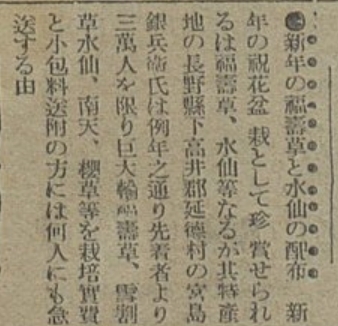 ●新年の福壽草と水仙の配布　新
年の祝花盆栽として珍賞せられ
るは福壽草、水仙等なるが其特産
地の長野縣下高井郡延德村の宮島
銀兵衞氏は例年之通り先着者より
三萬人を限り巨大輪福壽草、雪割
草水仙、南天、櫻草等を栽培實費
と小包料送附の方には何人にも急
送する由